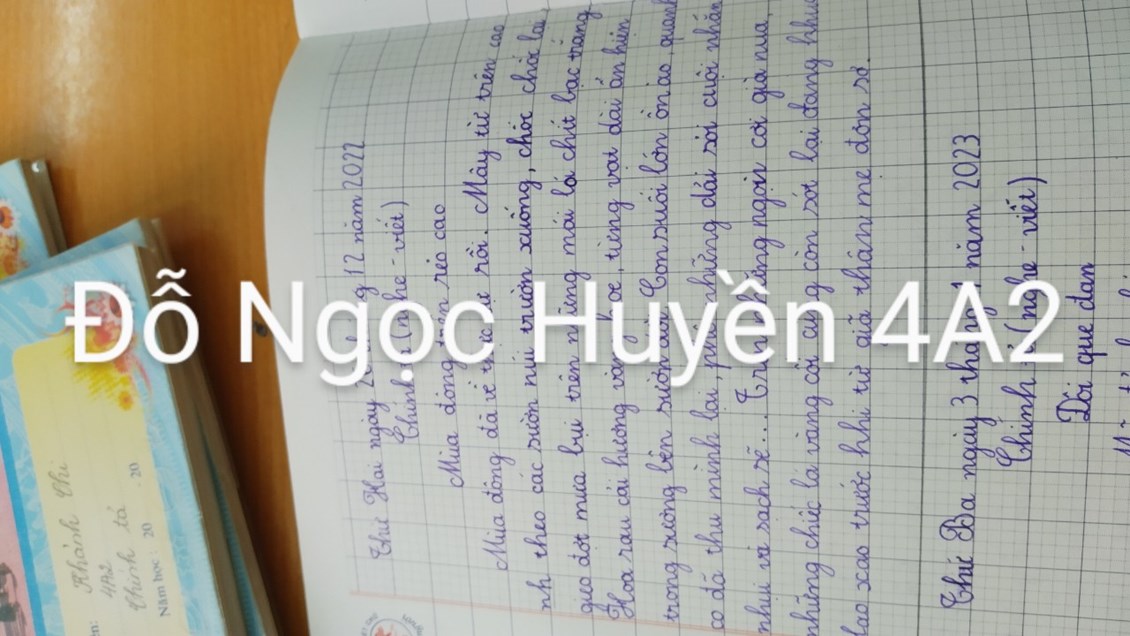 Đỗ Ngọc Huyền 4A2
Thứ Hai ngày 12 năm 2022
Chính (nghe - viết)
Mùa đông trên rẻo cao
Mùa đông đã về thực sự rồi. Mây từ trên cao
nh theo các sườn núi trườn xuống, chốc chốc lại
gieo đợt mưa bụi trên những mái lá chít bạc trắng
Hoa rau cải hương vàng hoe, từng vạt dài ẩn hiện
trong sương bên sườn đồi. Con suối lớn ồn ào quanh
co đã thu mình lại, phô những dải sỏi cuội nhẵn
nhụi và sạch sẽ... Trên những ngọn cơi già nua,
những chiếc lá vàng cuối cùng còn sót lại đang khua
lao xao trước khi từ giã thân mẹ đơn sơ.
Thứ Ba ngày 3 tháng 1 năm 2023
Chính tả (nghe - viết)
Đôi que đan
Khánh Chi
4A2
Chính tả
Năm học: 20 - 20